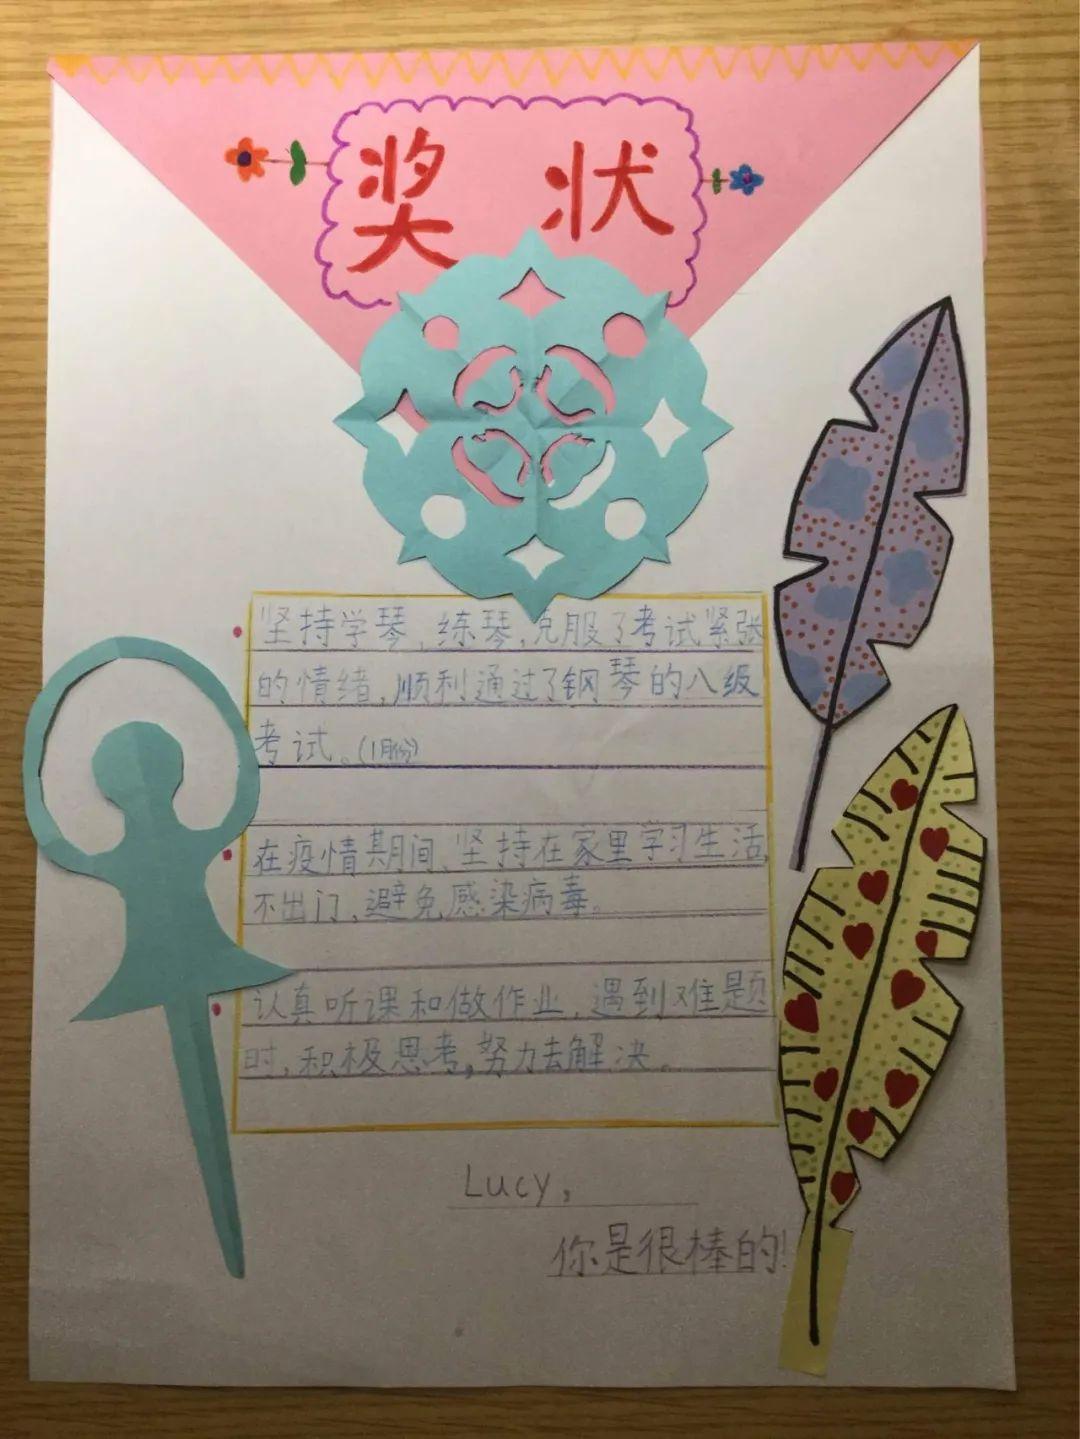 奖状
坚持学琴，练琴，克服了考试紧张
的情绪，顺利通过了钢琴的八级
考试。(1月份)
在疫情期间、坚持在家里学习生活，
不出门，避免感染病毒。
认真听课和做作业，遇到难题
时，积极思考，努力去解决。
Lucy，
你是很棒的！